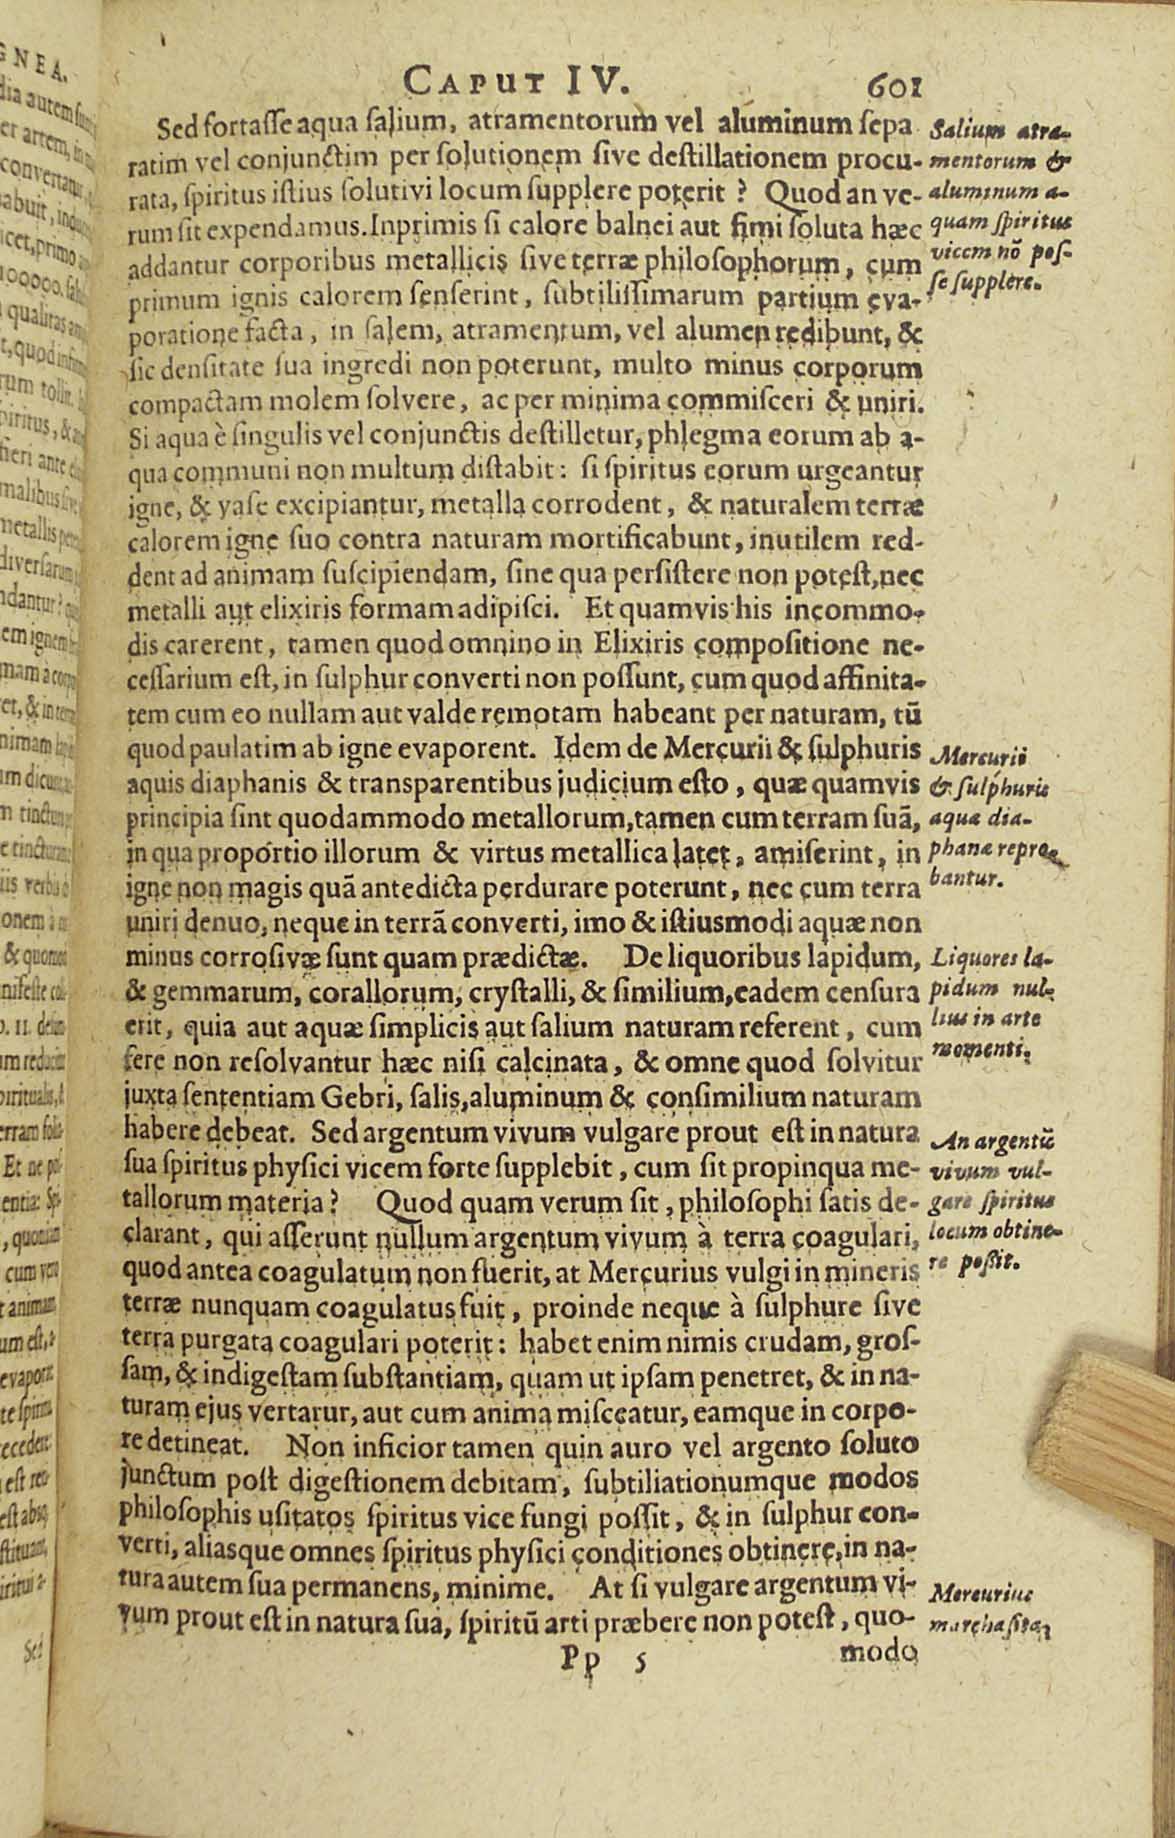 CAPUT IV. 601
Sed fortasse aqua salium, atramentorum vel aluminum sepa
ratim vel conjunctim per solutionem sive destillationem procu-
rata, spiritus istius solutivi locum supplere poterit? Quod an ve-
rum sit expendamus. Inprimis si calore balnei aut fimi soluta hæc
addantur corporibus metallicis sive terræ philosophorum, cum
primum ignis calorem senserint, subtilissimarum partium eva-
poratione facta, in salem, atramentum, vel alumen redibunt, &
sic densitate sua ingredi non poterunt, multo minus corporum
compactam molem solvere, ac per minima commisceri & uniri.
Si aqua è singulis vel conjunctis destilletur, phlegma eorum ab a-
qua communi non multum distabit: si spiritus eorum urgeantur
igne, & vase excipiantur, metalla corrodent, & naturalem terræ
calorem igne suo contra naturam mortificabunt, inutilem red-
dent ad animam suscipiendam, sine qua persistere non potest, nec
metalli aut elixiris formam adipisci. Et quamvis his incommo-
dis carerent, tamen quod omnino in Elixiris compositione ne-
cessarium est, in sulphur converti non possunt, cum quod affinita-
tem cum eo nullam aut valde remotam habeant per naturam, tū
quod paulatim ab igne evaporent. Idem de Mercurii & sulphuris
aquis diaphanis & transparentibus judicium esto, quæ quamvis
principia sint quodammodo metallorum, tamen cum terram suā,
in qua proportio illorum & virtus metallica latet, amiserint, in
igne non magis quā antedicta perdurare poterunt, nec cum terra
uniri denuo, neque in terrā converti, imo & istiusmodi aquæ non
minus corrosivæ sunt quam prædictæ. De liquoribus lapidum,
& gemmarum, corallorum, crystalli, & similium, eadem censura
erit, quia aut aquæ simplicis aut salium naturam referent, cum
fere non resolvantur hæc nisi calcinata, & omne quod solvitur
juxta sententiam Gebri, salis, aluminum & consimilium naturam
habere debeat. Sed argentum vivum vulgare prout est in natura
sua spiritus physici vicem forte supplebit, cum sit propinqua me-
tallorum materia? Quod quam verum sit, philosophi satis de-
clarant, qui asserunt nullum argentum vivum à terra coagulari,
quod antea coagulatum non fuerit, at Mercurius vulgi in mineris
terræ nunquam coagulatus fuit, proinde neque à sulphure sive
terra purgata coagulari poterit: habet enim nimis crudam, gros-
sam, & indigestam substantiam, quam ut ipsam penetret, & in na-
turam ejus vertatur, aut cum anima misceatur, eamque in corpo-
re detineat. Non inficior tamen quin auro vel argento soluto
junctum post digestionem debitam, subtiliationumque modos
philosophis usitatos spiritus vice fungi possit, & in sulphur con-
verti, aliasque omnes spiritus physici conditiones obtinere, in na-
tura autem sua permanens, minime. At si vulgare argentum vi-
vum prout est in natura sua, spiritū arti præbere non potest, quo-
Pp 5 modo
Salium atra-
mentorum &
aluminum a-
quam spiritus
vicem nō pos-
se supplere.
Mercurii
& sulphuris
aqua dia-
phanæ repro-
bantur.
Liquores la-
pidum nul-
lius in arte
momenti.
An argentū
vivum vul-
gare spiritus
locum obtine-
re possit.
Mercurius
marchasita,
GNEA.